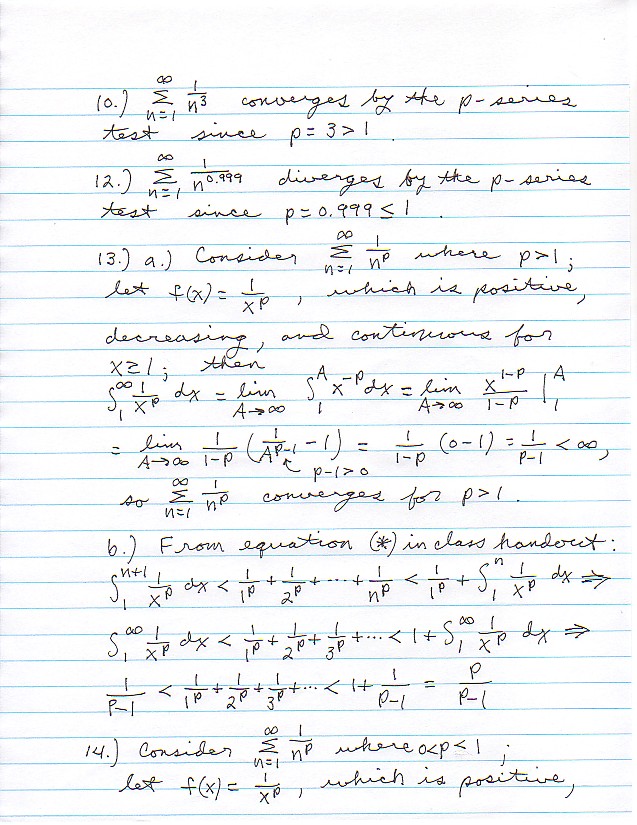 10.) ∞ Σ n=1 1/n³ converges by the p-series
test since p = 3 > 1.
12.) ∞ Σ n=1 1/n^0.999 diverges by the p-series
test since p = 0.999 ≤ 1.
13.) a.) Consider ∞ Σ n=1 1/n^p where p>1;
let f(x) = 1/x^p, which is positive,
decreasing, and continuous for
x≥1; then
∫₁^∞ 1/x^p dx = lim A→∞ ∫₁^A x^-p dx = lim A→∞ x^(1-p)/(1-p) |₁^A
= lim A→∞ 1/(1-p) (1/A^(p-1) - 1) = 1/(1-p) (0-1) = 1/(p-1) < ∞,
p-1>0
so ∞ Σ n=1 1/n^p converges for p>1.
b.) From equation (*) in class handout:
∫₁^(n+1) 1/x^p dx < 1/1^p + 1/2^p + ··· + 1/n^p < 1/1^p + ∫₁^n 1/x^p dx ⇒
∫₁^∞ 1/x^p dx < 1/1^p + 1/2^p + 1/3^p + ··· < 1 + ∫₁^∞ 1/x^p dx ⇒
1/(p-1) < 1/1^p + 1/2^p + 1/3^p + ··· < 1 + 1/(p-1) = p/(p-1)
14.) Consider ∞ Σ n=1 1/n^p where 0<p<1;
let f(x) = 1/x^p, which is positive,